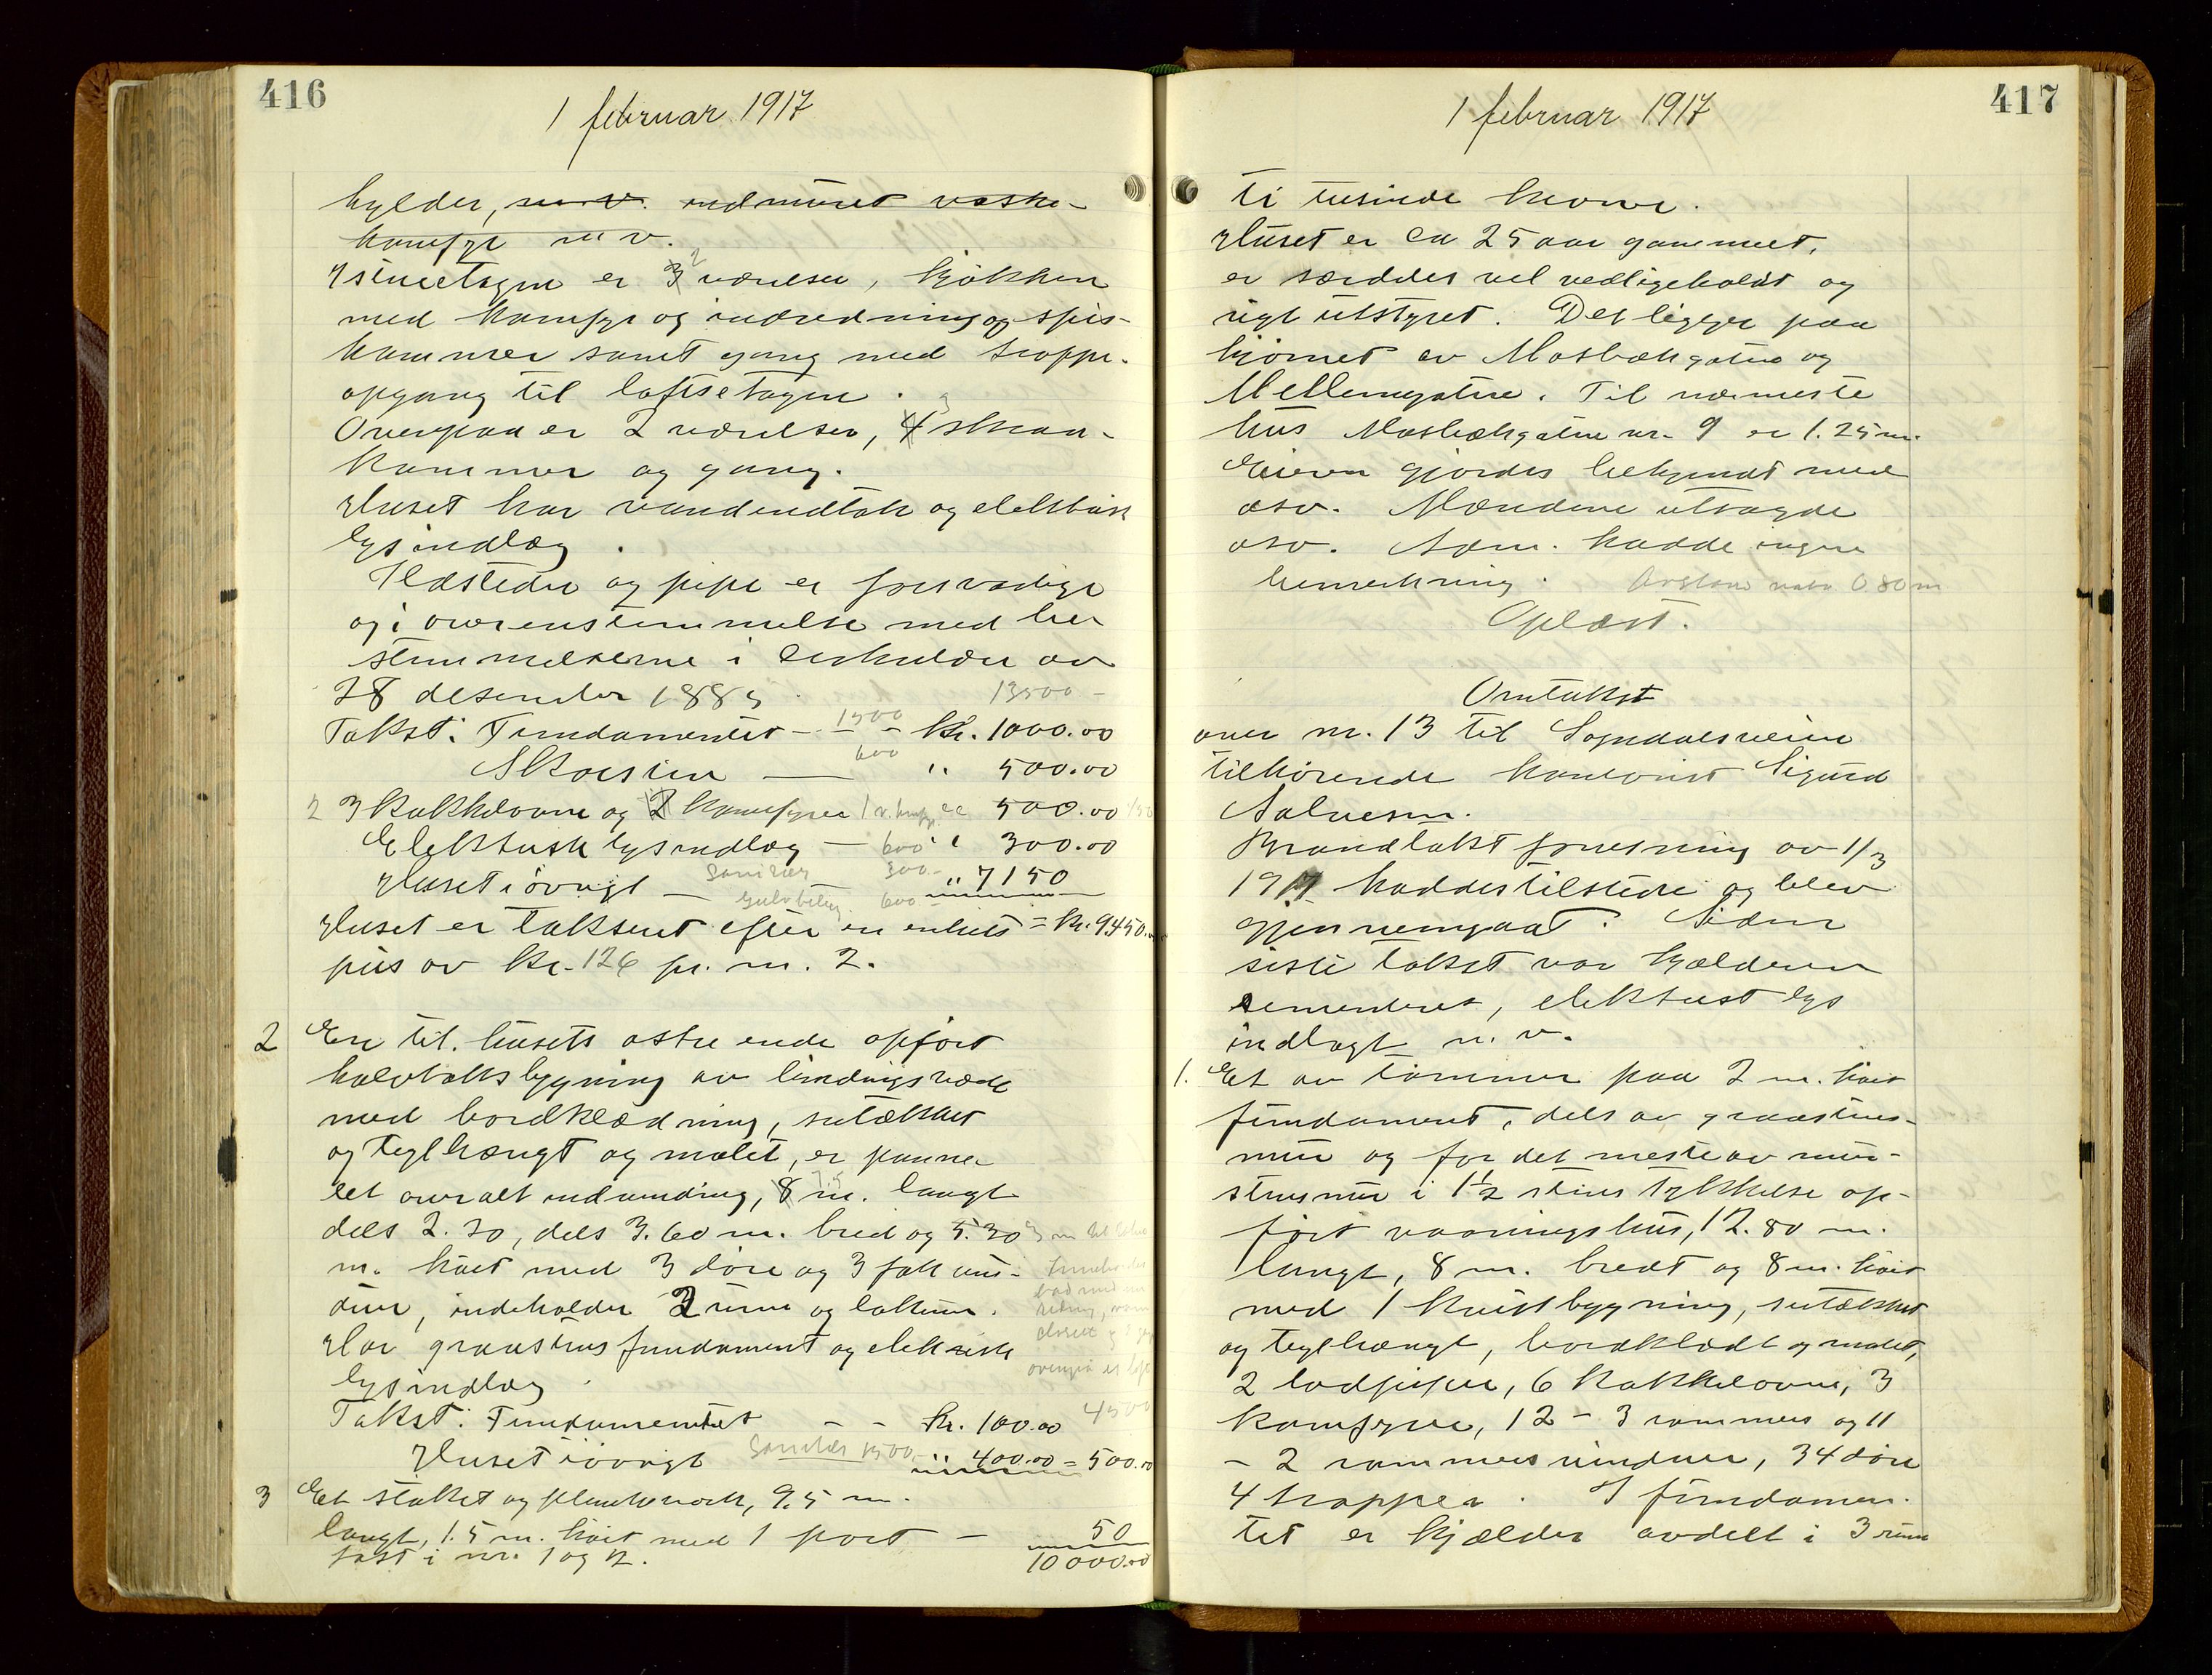 416
1 februar 1917
hylder, m. v. indmuret vaske-
komfyr m v.
I 1ste etagen er 3 2 værelser, kjøkken
med komfyr og indredning og spis-
kammer samt gang med trappe-
opgang til loftsetagen.
Ovenpaa er 2 værelser, 4 skraa-
kammer og gang.
Huset har vandindtak og elektrisk
lysindlæg.
Ildsteder og pipe er forsvarlige
og i overensstemmelse med be-
stemmelserne i cirkulær av
28 desember 1885
13500 -
Takst: Fundamentet - 1500 - Kr. 1000.00
Skorsten — 600 " 500.00
2 3 kakkelovne og 2 komfyrer 500.00
Elektrisk lysindlæg — 600 " 300.00
Huset iøvrigt — Sanitær 300 - " 7150
Gulvbeleg 600 -
Huset er taksert efter en enhets = Kr. 9450.
pris av kr. 126 pr. m. 2.
2 En til husets østre ende opført
halvtaksbygning av bindingsværk
med bordklædning, sutækket
og teglhængt og malet, er panne-
let overalt indvendig, 8 m. langt
dels 2.30, dels 3.60 m. bred og 5.30
m. høit med 3 døre og 3 fak vin-
duer, indeholder 3 rum og lokum.
Har graastens fundament og elektrisk
lysindlæg.
Takst: Fundamentet - - Kr. 100.00 4500
Huset iøvrigt Sanitær 1500 - " 400.00 = 500.00
3 Et stakit og plankeverk, 9.5 m.
langt, 1.5 m. høit med 1 port - 50
fast i nr. 1 og 2.
10000.00
417
1 februar 1917
ti tusinde kroner.
Huset er ca 25 aar gammelt,
er særdeles vel vedligeholdt og
rigt utstyret. Det ligger paa
hjørnet av Mosbækgaten og
Mellemgaten. Til nærmeste
hus Mosbækgaten nr. 9 er 1.25 m.
Eieren gjordes bekjendt med
osv. Mændene utsagde
osv. Adm. hadde ingen
bemerkning. Avstand nabo 0 80 m
Oplæst.
Omtakst
over nr. 13 til Sogndalsveien
tilhørende kontorist Sigurd
Salvesen.
Brandtakstforretning av 1/3
1911 haddes tilstede og blev
gjennemgaat. Siden
siste takst var kjælderen
sementeret, elektrisk lys
indlagt m. v.
1. Et av tømmer paa 2 m. høit
fundament, dels av graastens-
mur og for det meste av mur-
stensmur i 1½ stens tykkelse op-
ført vaaningshus, 12.80 m.
langt, 8 m. bredt og 8 m. høit
med 1 kvistbygning, sutækket
og teglhængt, bordklædt og malet,
2 lodpiper, 6 kakkelovne, 3
komfyrer, 12 - 3 rammers og 11
- 2 rammers vinduer, 34 døre
4 trapper. I fundamen-
tet er kjælder avdelt i 3 rum